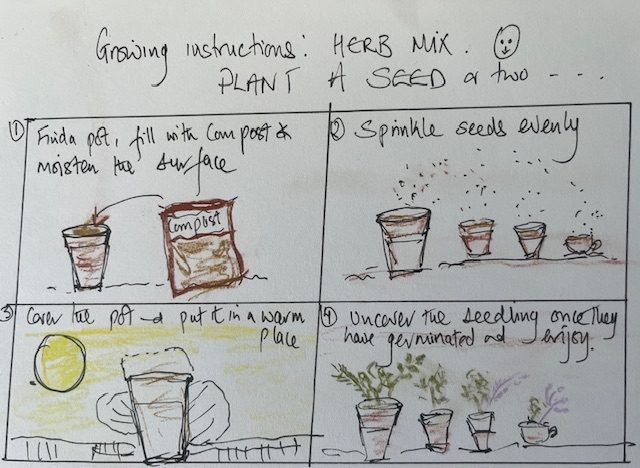 Growing instructions: HERB MIX.
PLANT A SEED or two - - - .
① Find a pot, fill with Compost &
moisten the surface
Compost
② Sprinkle seeds evenly
③ Cover the pot → put it in a warm
place
④ Uncover the seedling once they
have germinated and enjoy.